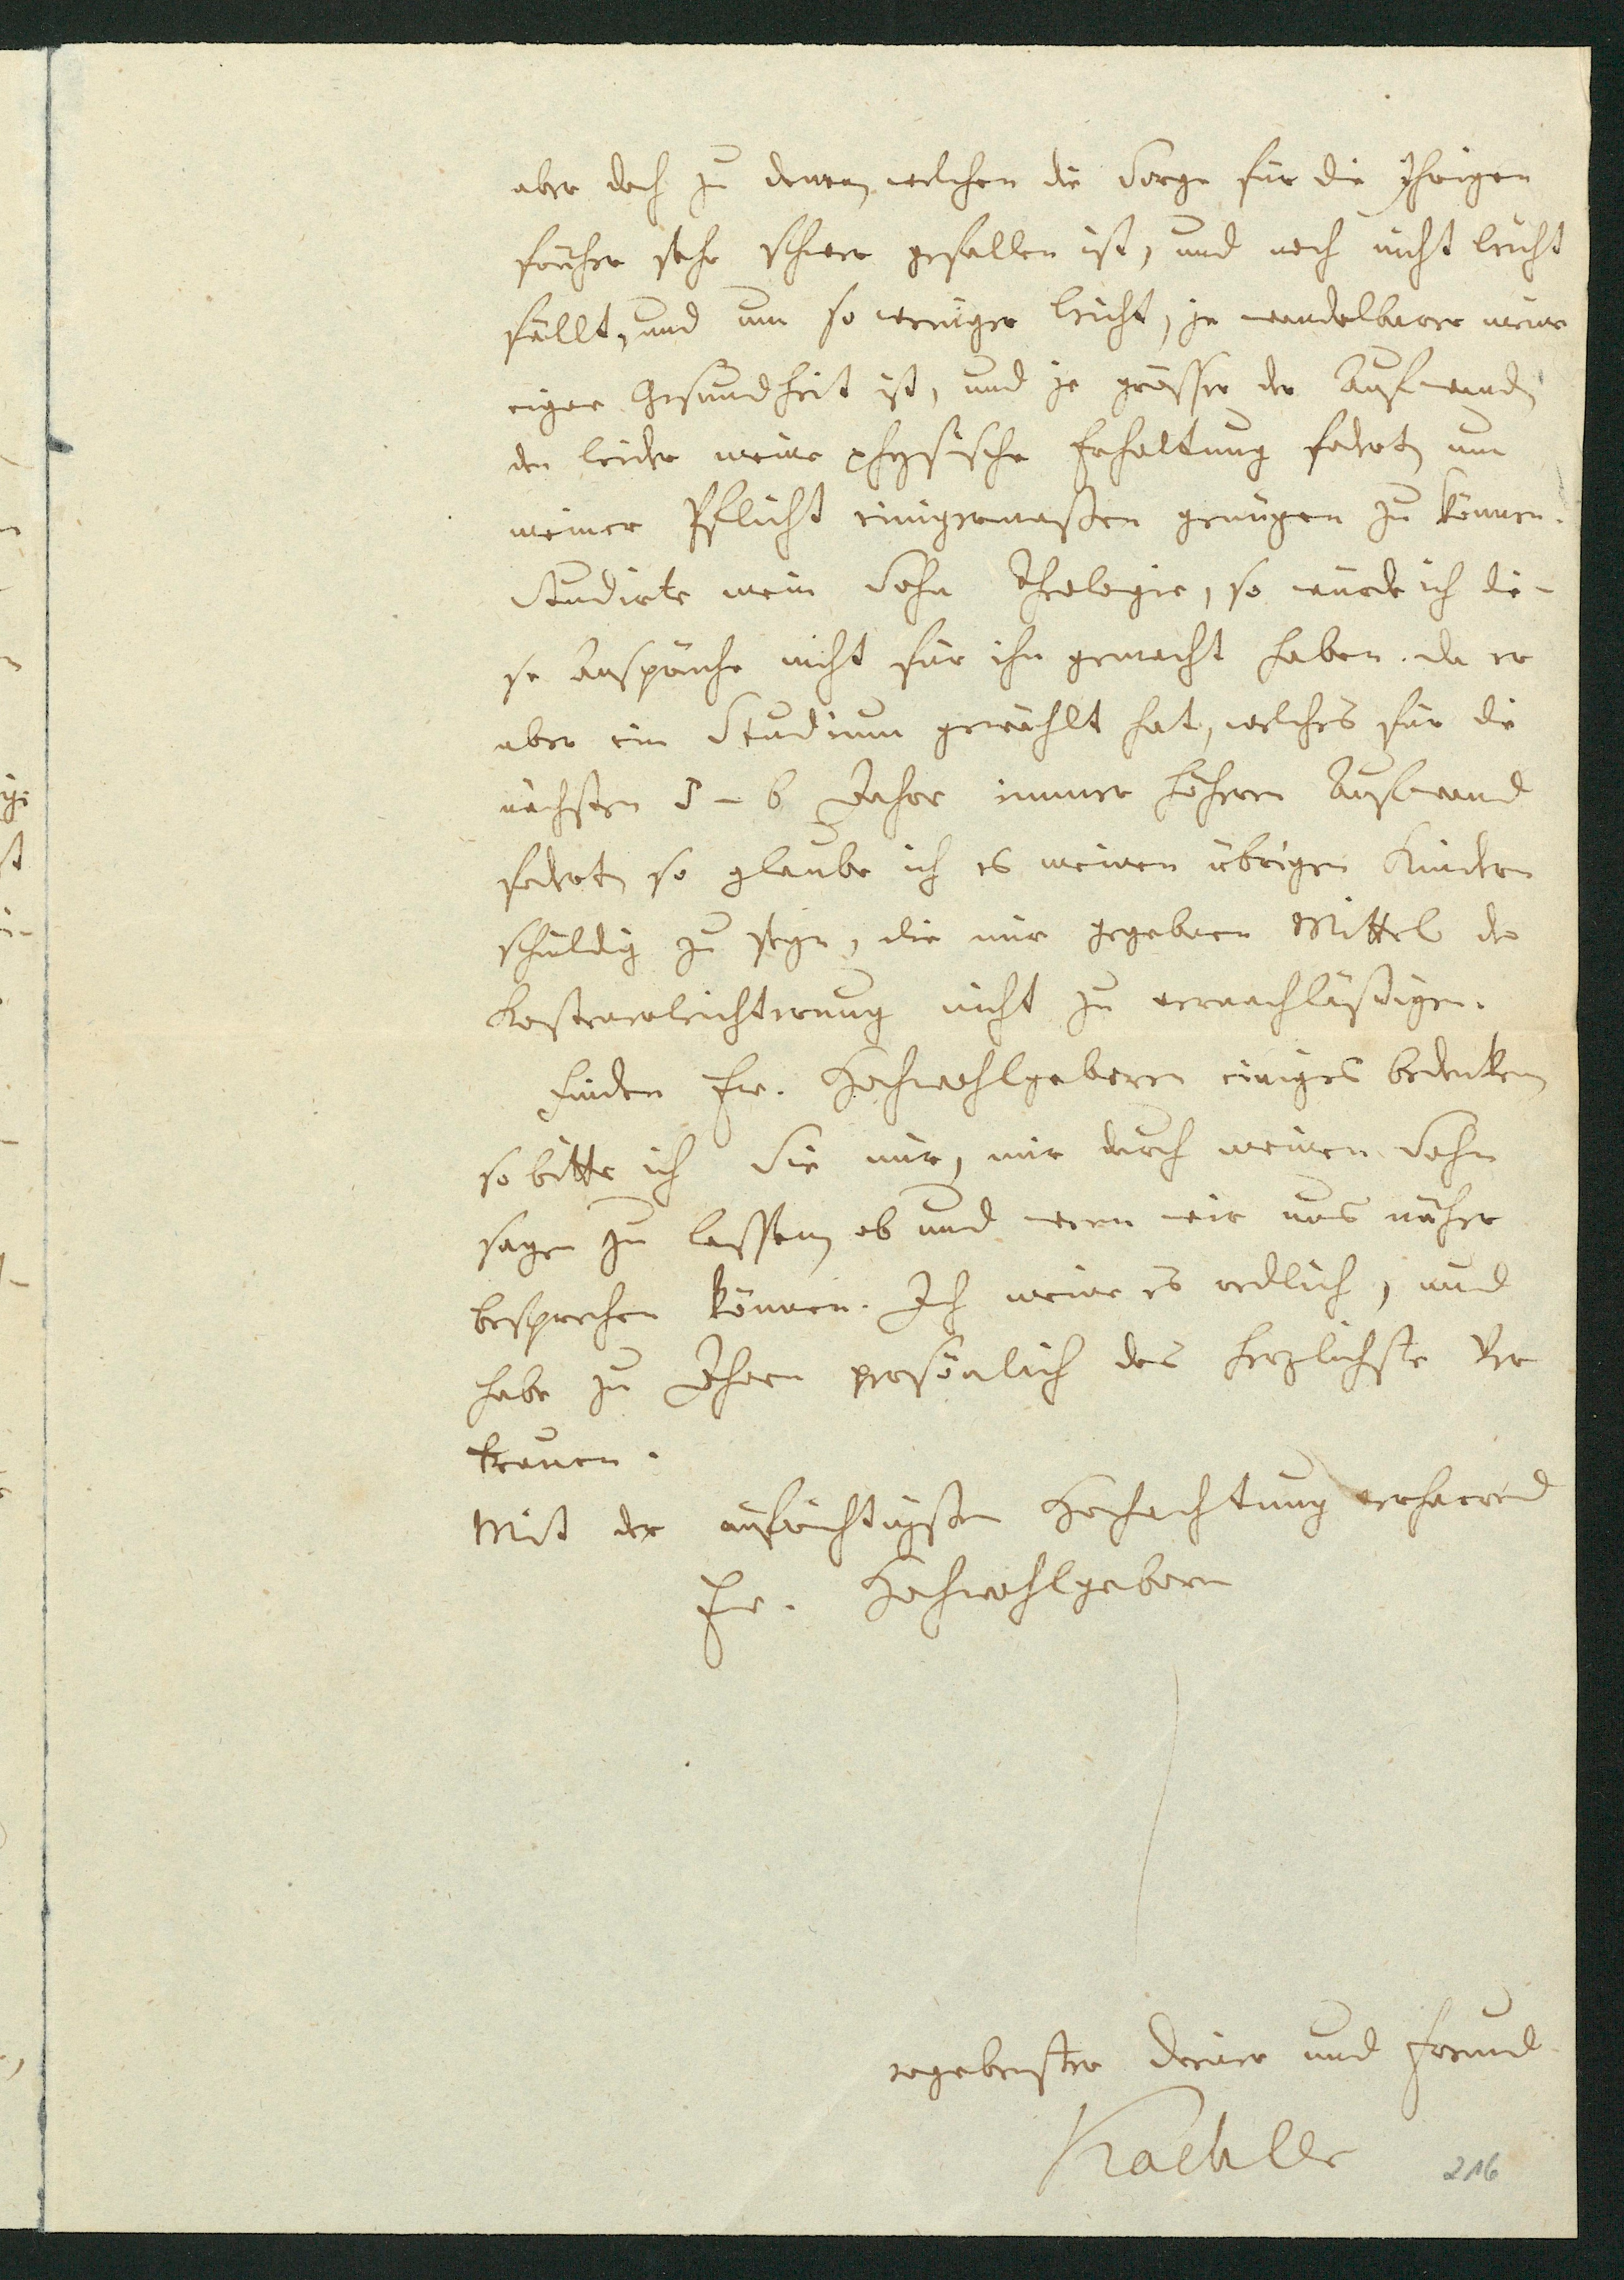 aber doch zu denen, welchen die Sorge für die Ihrigen
früher sehr schwer gefallen ist, und noch nicht leicht
fällt, und um so weniger leicht, je wandelbarer meine
eigne Gesundheit ist, und je grösser der Aufwand,
den leider meine physische Erhaltung fodert, um
meiner Pflicht einigermaßen genügen zu können.
Studirte mein Sohn Theologie, so würde ich die-
se Ansprüche nicht für ihn gemacht haben. da er
aber ein Studium gewählt hat, welches für die
nächsten 5 - 6 Jahre immer höhern Aufwand
fodert, so glaube ich es meinen übrigen Kindern
schuldig zu seyn, die mir gegebnen Mittel der
Kostenerleichterung nicht zu vernachläßigen.
Finden Ew. Hochwohlgeboren einiges bedenken,
so bitte ich Sie nur, mir durch meinen Sohn
sagen zu lassen, ob und wenn wir uns näher
besprechen können. Ich meine es redlich, und
habe zu Ihnen persönlich das herzlichste Ver
trauen.
Mit der aufrichtigsten Hochachtung verharrend
Ew. Hochwohlgeborn
ergebenster Diener und Freund
Kaehler
216